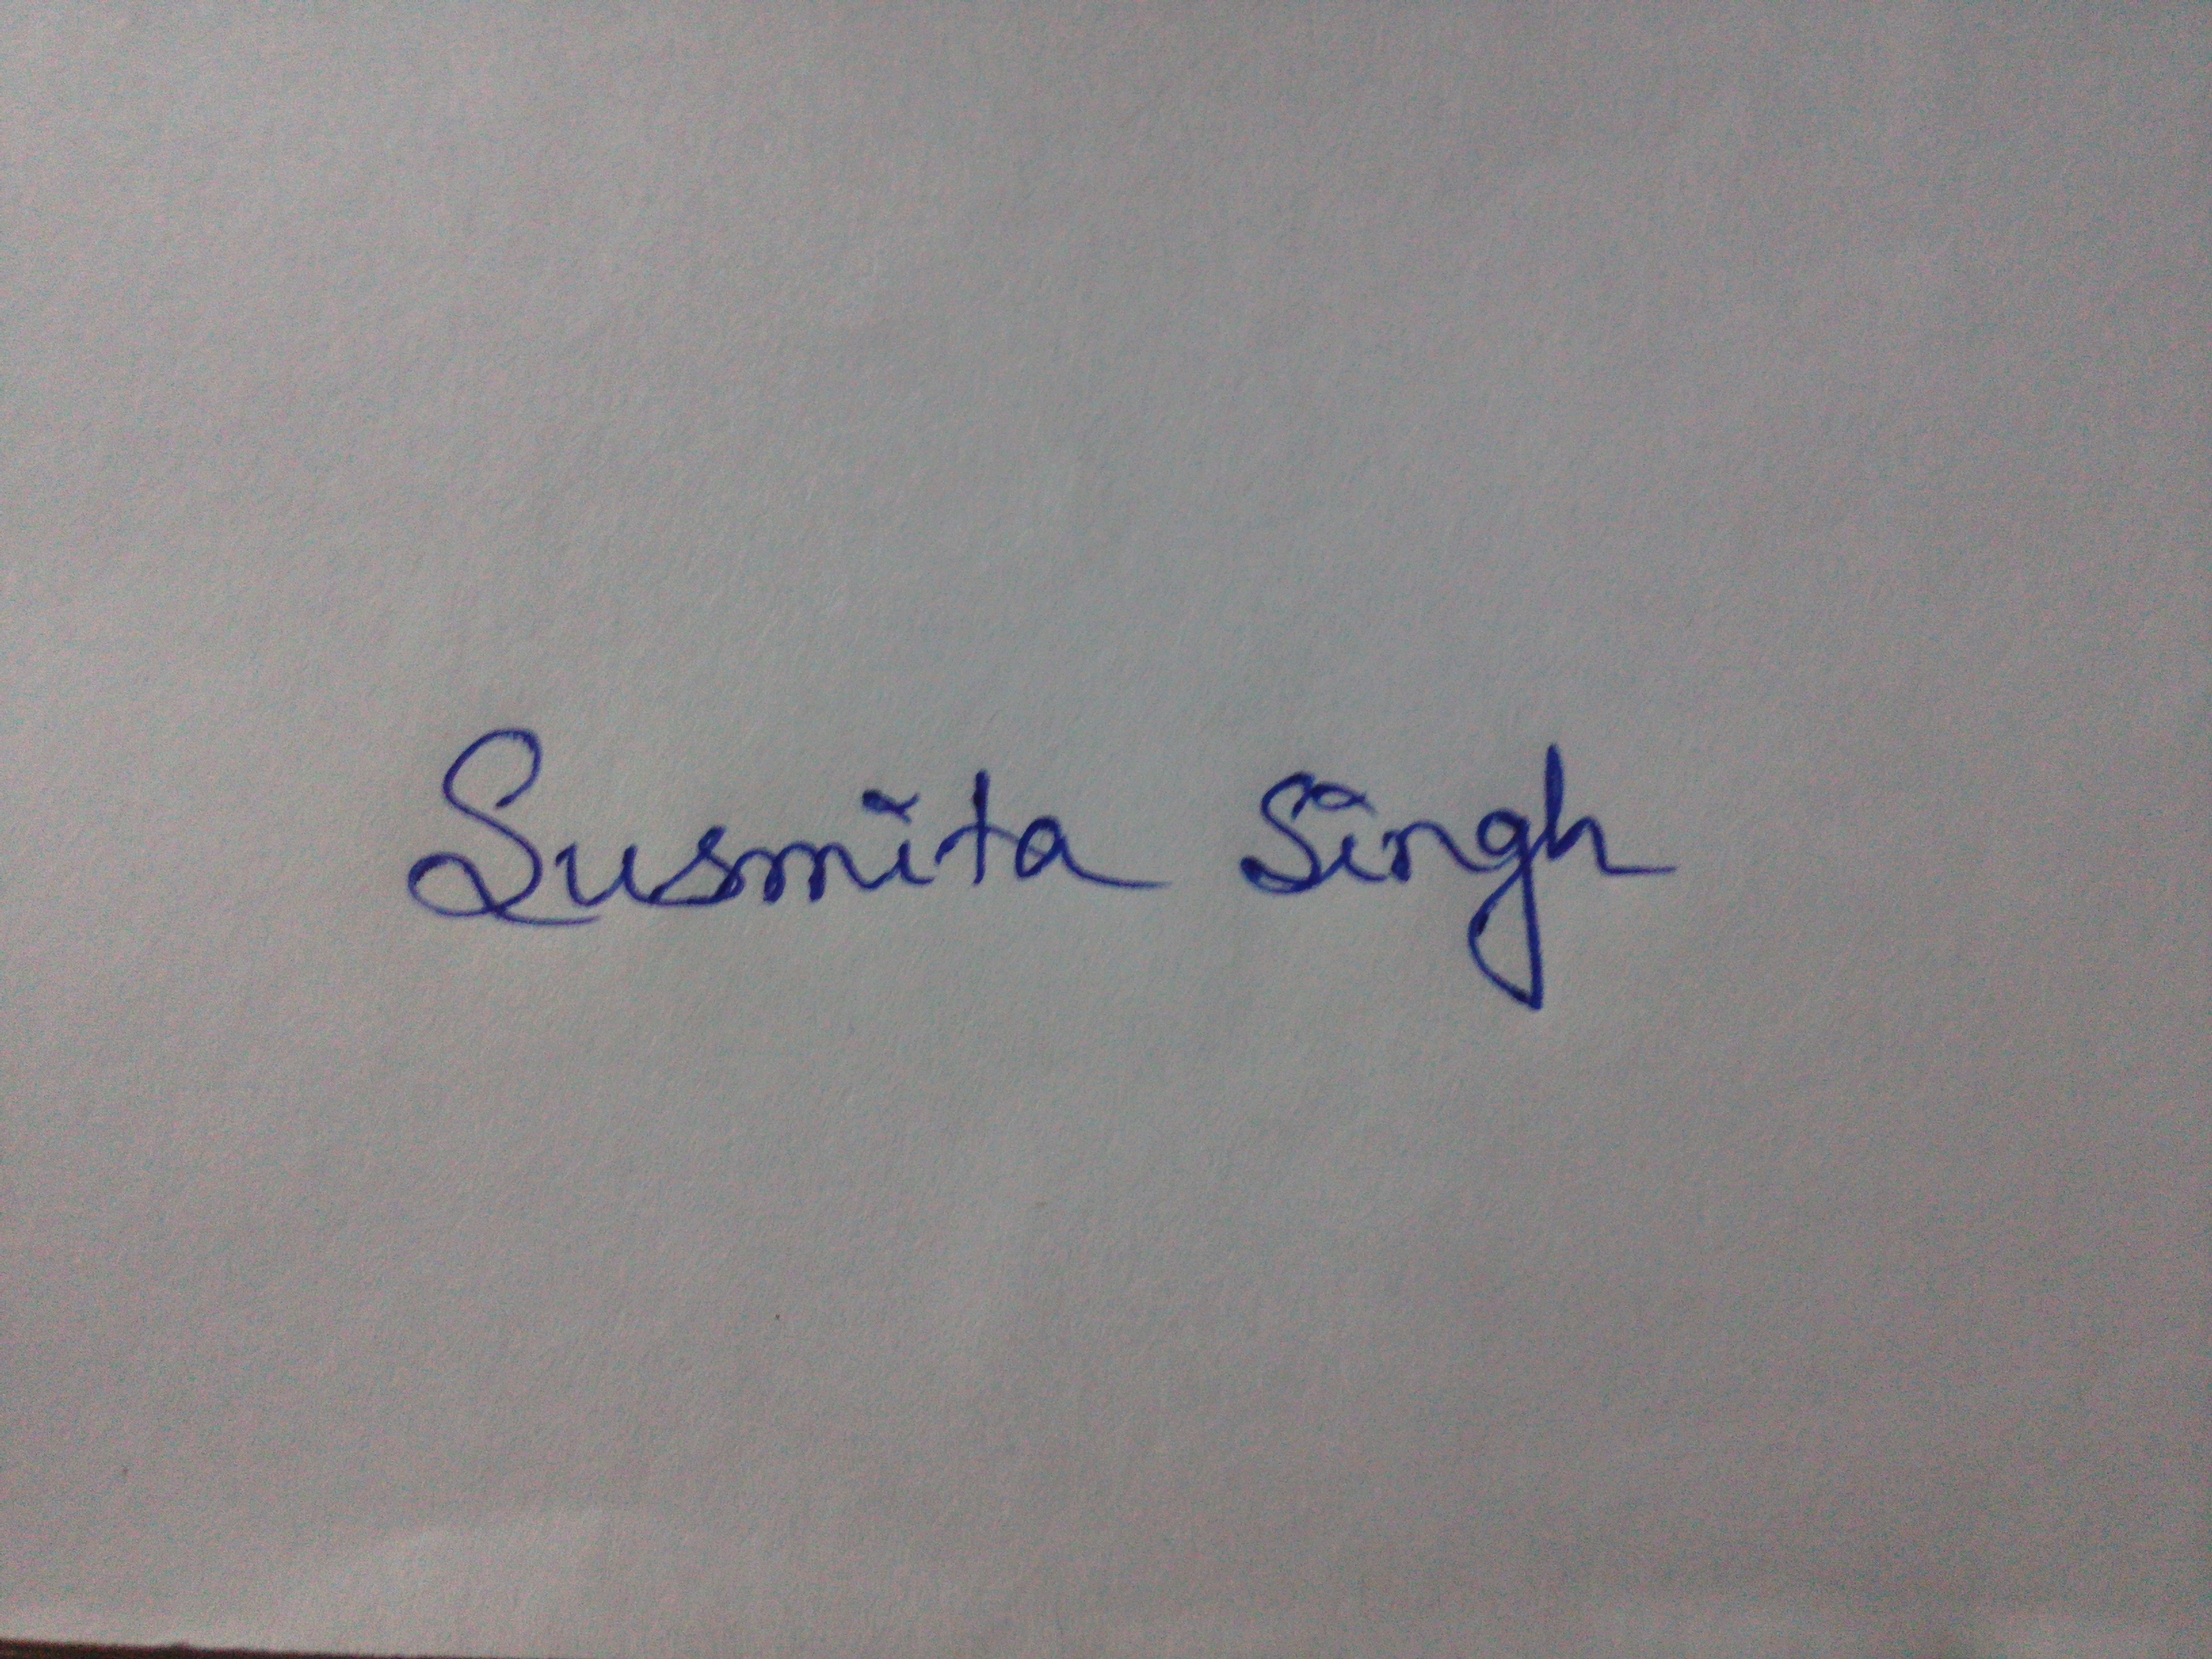 Susmita Singh